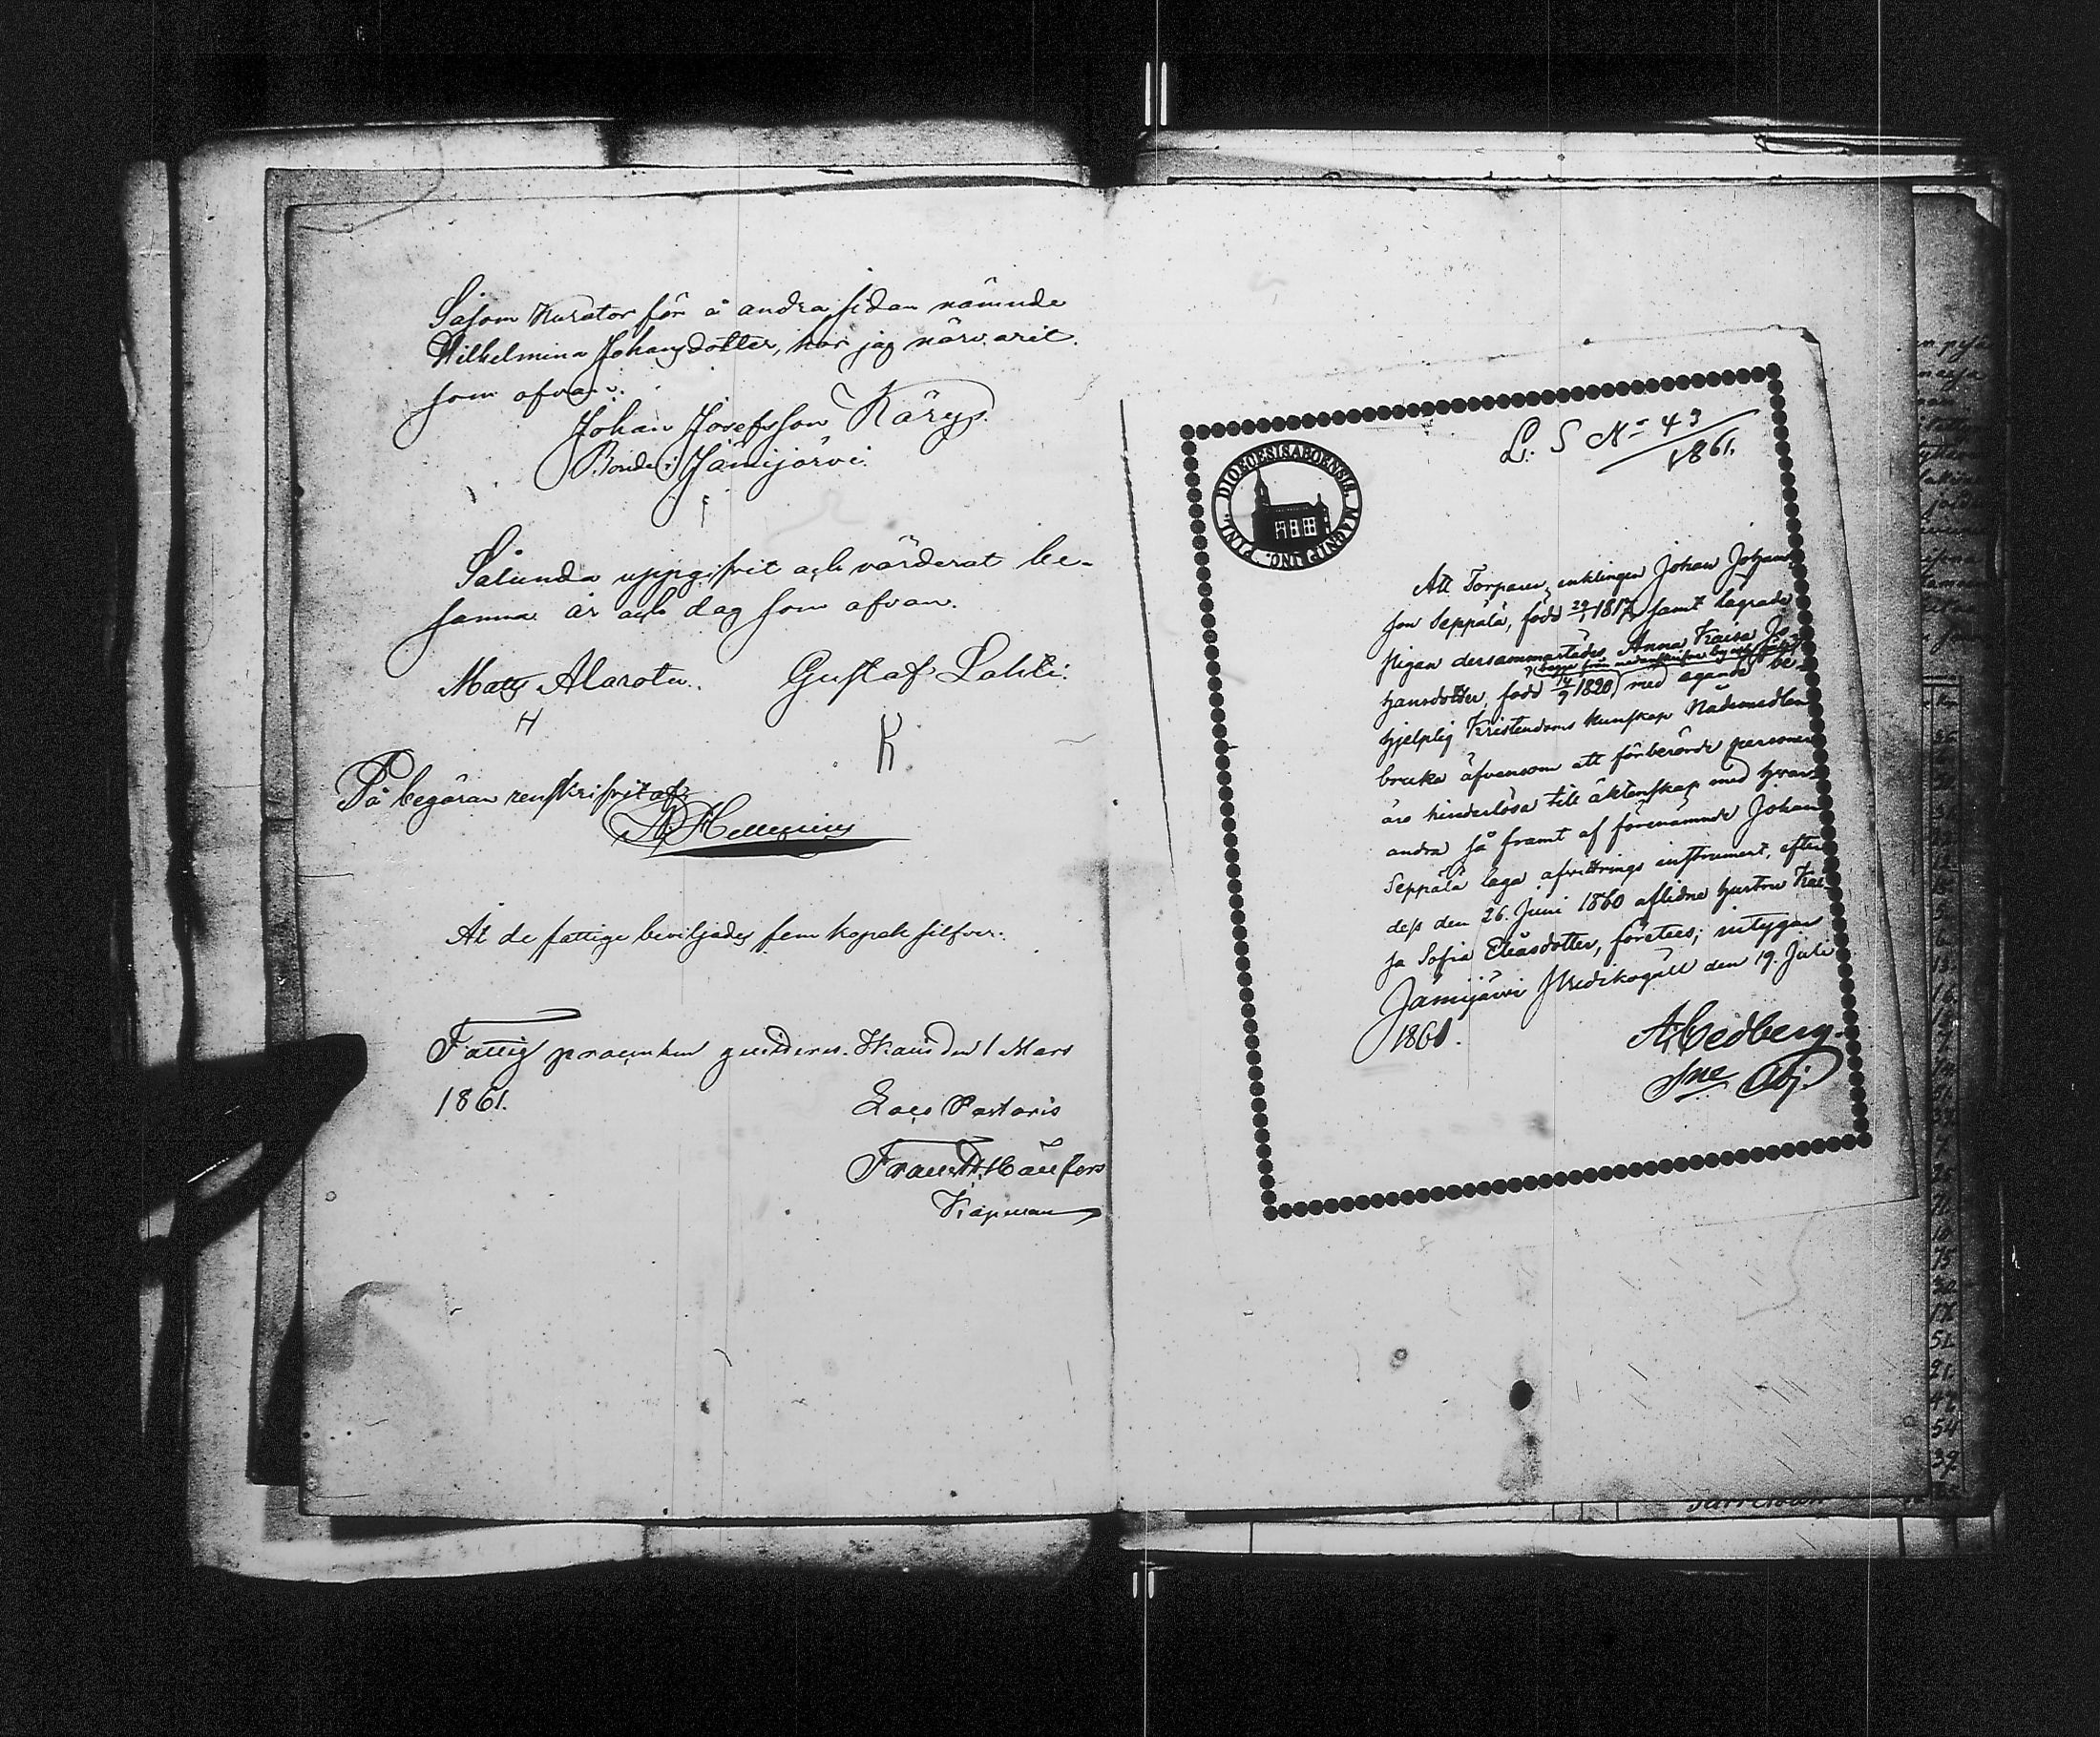 Såsom Kurator för å andra sidan nämnde
Wilhelmina Johansdotter, har jag närvarit.
som ofvan:
Johan Josefsson Kärys.
Bonde i Jämijärvi.
Sålunda uppgifvit och värderat be-
sanna år och dag som ofvan.
Matts Alarotu. Gustaf Lahti:
H K
På begäran renskrifvit af:
At de fattige beviljades fem kopek silfver:
Fattig procenten qvitteras. den 1 Mars
1861.
Loco Pastoris
Kapellan
L. S No 43
1861.
DIOECESIS ABOENSIS. MAGNI PRINC. FINL.
Att Torparen, enklingen Johan Johans
son Seppälä, född 29/1 1817, samt lagrade
pigan dersammastädes Anna Kaisa Jo-
hansdotter, född 14/9 1820, med ägande be-
hjelplig Kristendoms kunskap Nådemedlen
bruka äfvensom att förberörde personer
äro hinderlösa till äktenskap med hvar-
andra så framt af förenämnde Johan
Seppälä laga afvittrings instrument, efter
dess den 26. Juni 1860 aflidne hustru Kai-
sa Sofia Eliasdotter, företees; intygar
Jämijärvi Predikogäll den 19. Juli
1861.
A. Hedberg.
Sne Adj.
75
51
21.
42
54
39